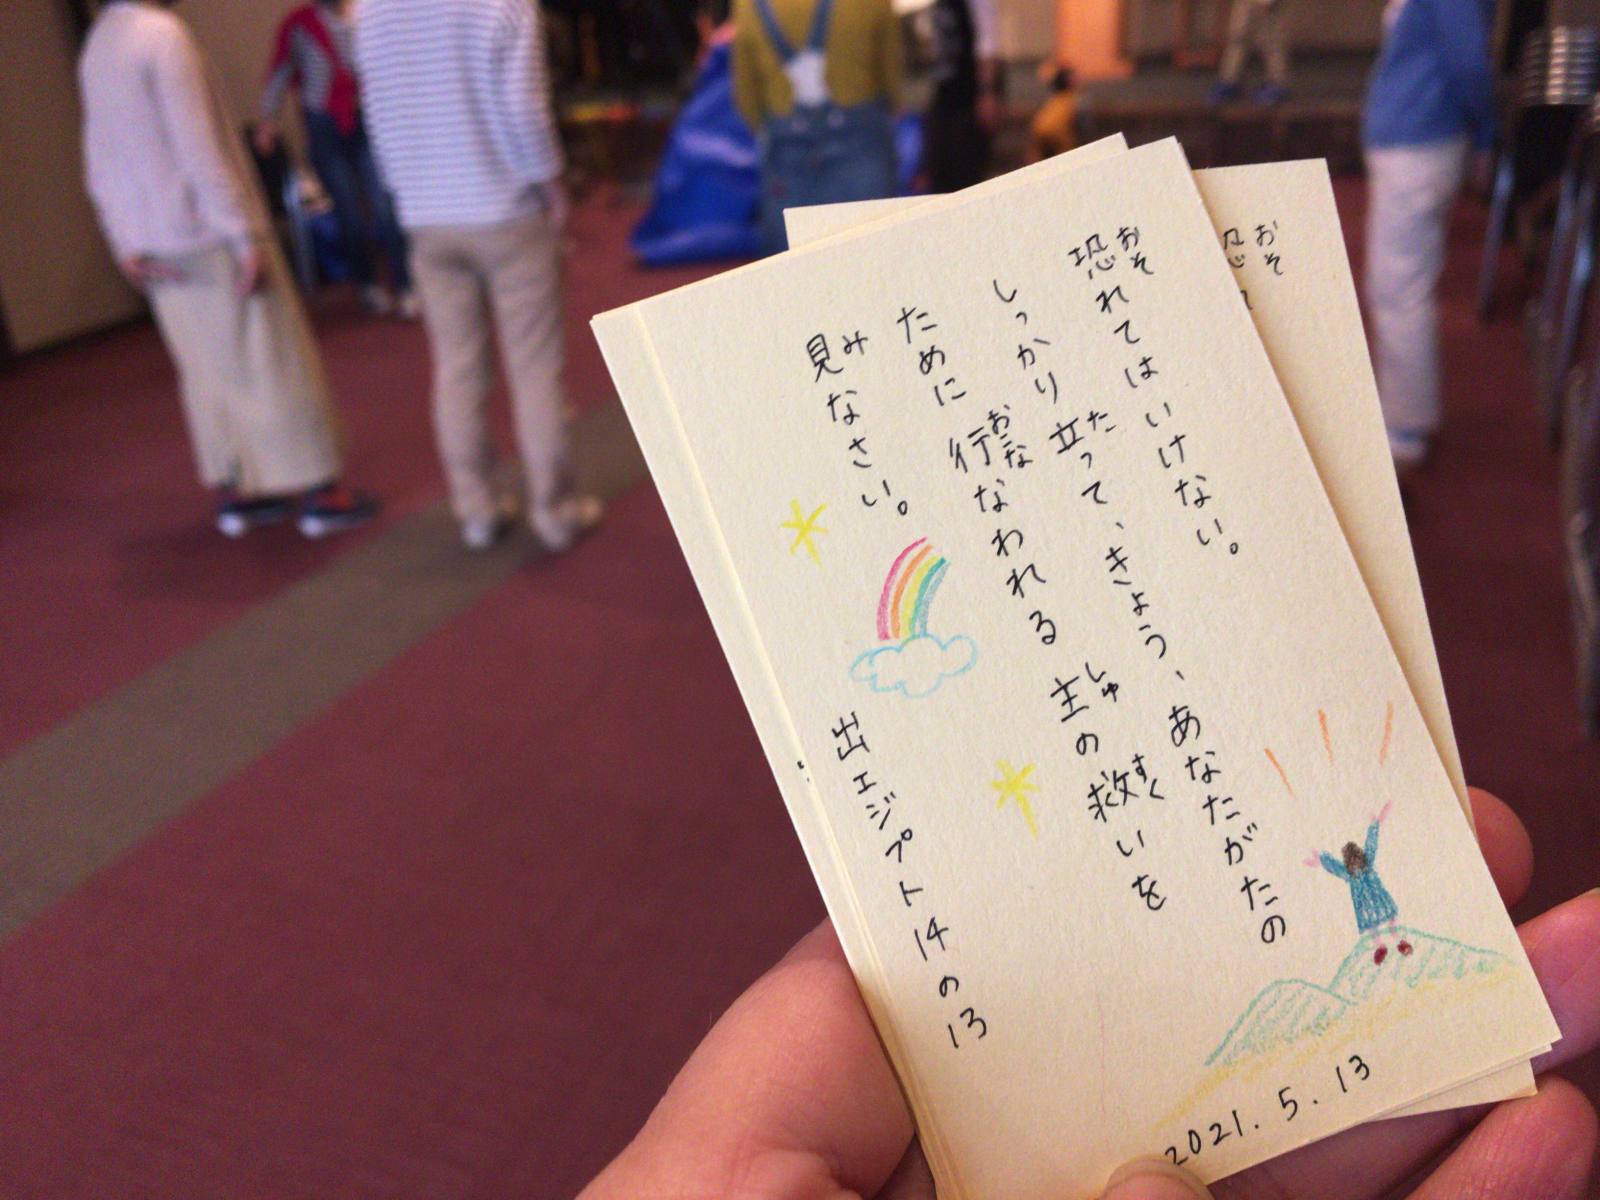 恐れてはいけない。
おそ
しっかり立って、きょう、あなたがたの
た
ために行なわれる主の救いを
おこな
しゅ
すく
見なさい。
み
出エジプト14の13
2021.5.13
おそ
恐れ